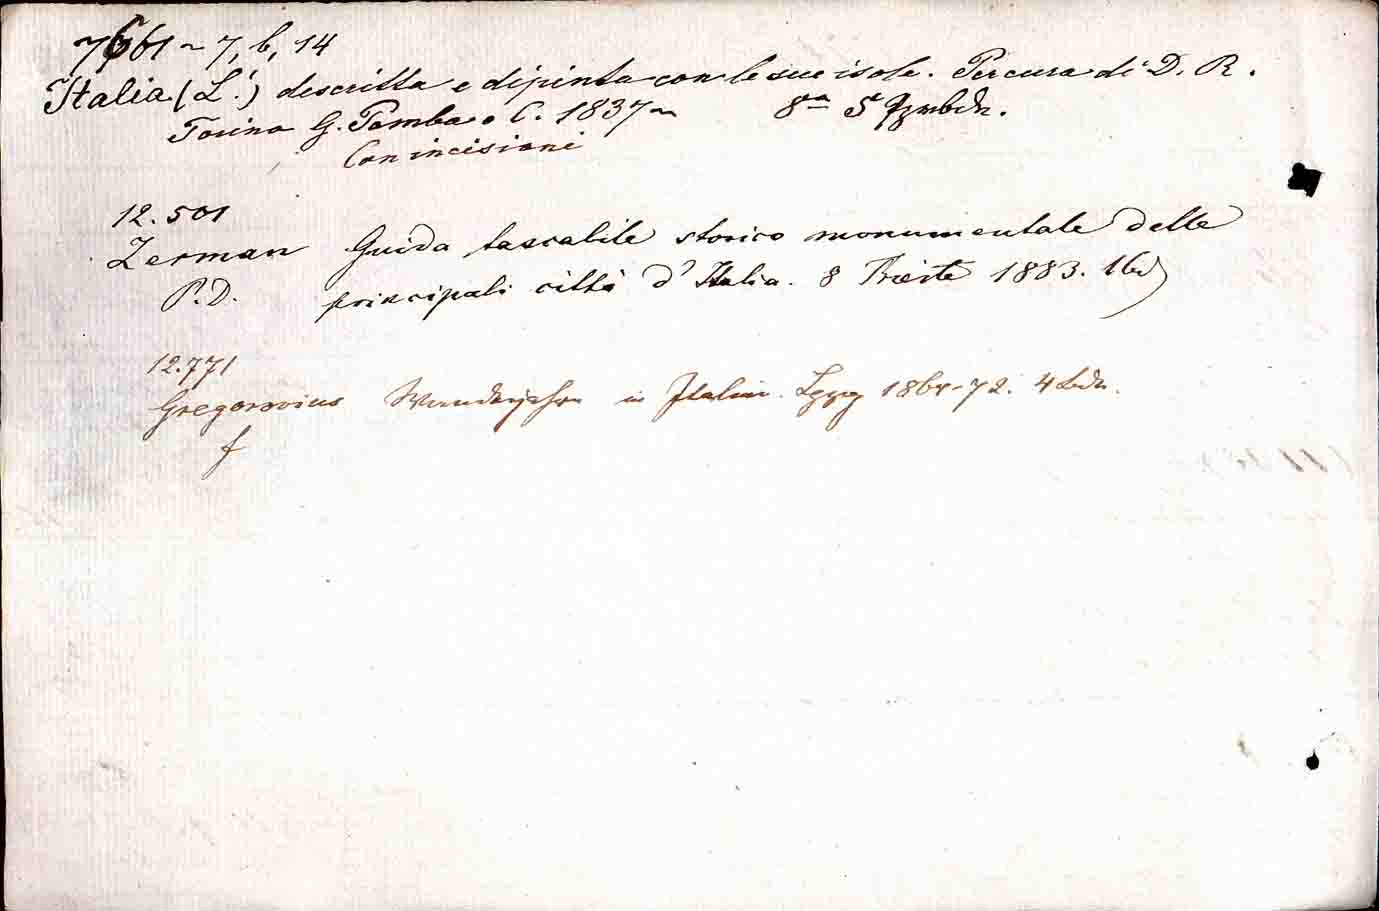 7661 ~ 7, b, 14
Italia (L') descritta e dipinta con le sue isole. Per cura di D. R.
Torino G. Pomba e C. 1837 ~ 8º 5
Con incisioni
12.501
Zerman Guida tascabile storico monumentale delle
P. D. principali città d'Italia. 8 Trieste 1883.
12.771
Gregorovius Wanderjahre in Italien. Lpzg 1864-72. 4 Bde.
f